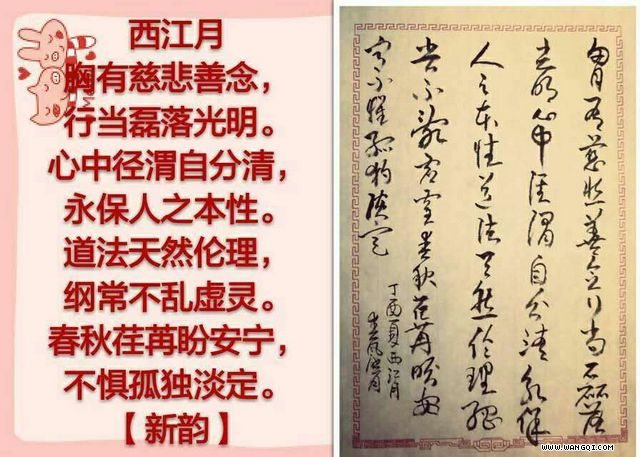 西江月
胸有慈悲善念，
行当磊落光明。
心中径渭自分清，
永保人之本性。
道法天然伦理，
纲常不乱虚灵。
春秋荏苒盼安宁，
不惧孤独淡定。
【新韵】
胸有慈悲善念行当磊落
光明心中泾渭自分清永保
人之本性道法天然伦理纲
常不乱虚灵春秋荏苒盼安
宁不惧孤独淡定
丁酉夏西江月
WWW.WANGQI.COM